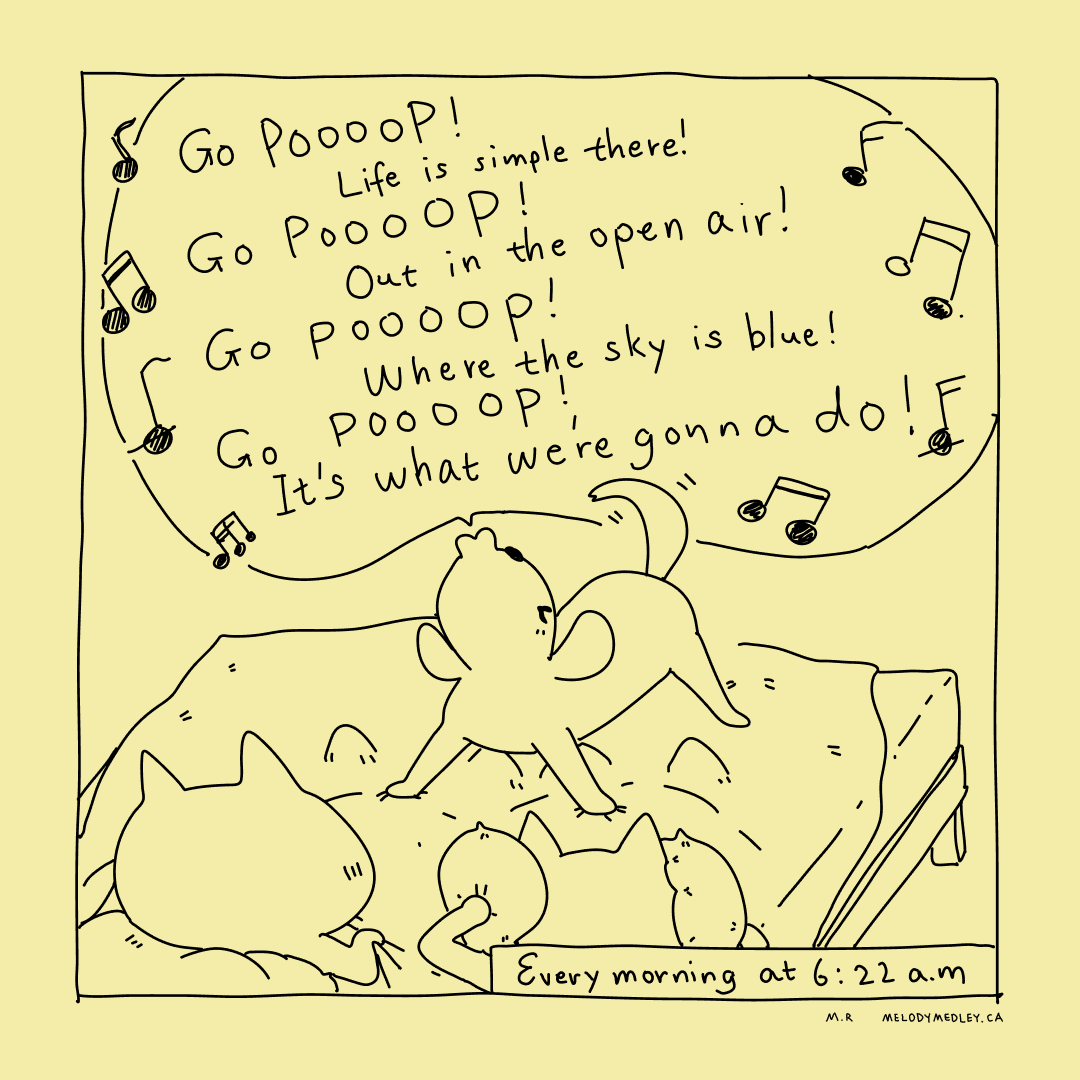 Go PooooP!
Life is simple there!
Go PooooP!
Out in the open air!
Go PooooP!
Where the sky is blue!
Go PooooP!
It's what we're gonna do!
Every morning at 6:22 a.m
M.R MELODYMEDLEY.CA